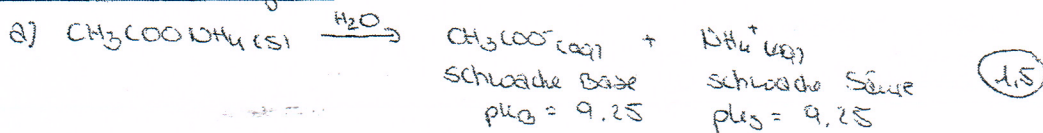 a) CH3COONH4(s) H2O→ CH3COO⁻(aq) + NH4⁺(aq)
schwache Base schwache Säure 1,5
pKB = 9,25 pKS = 9,25